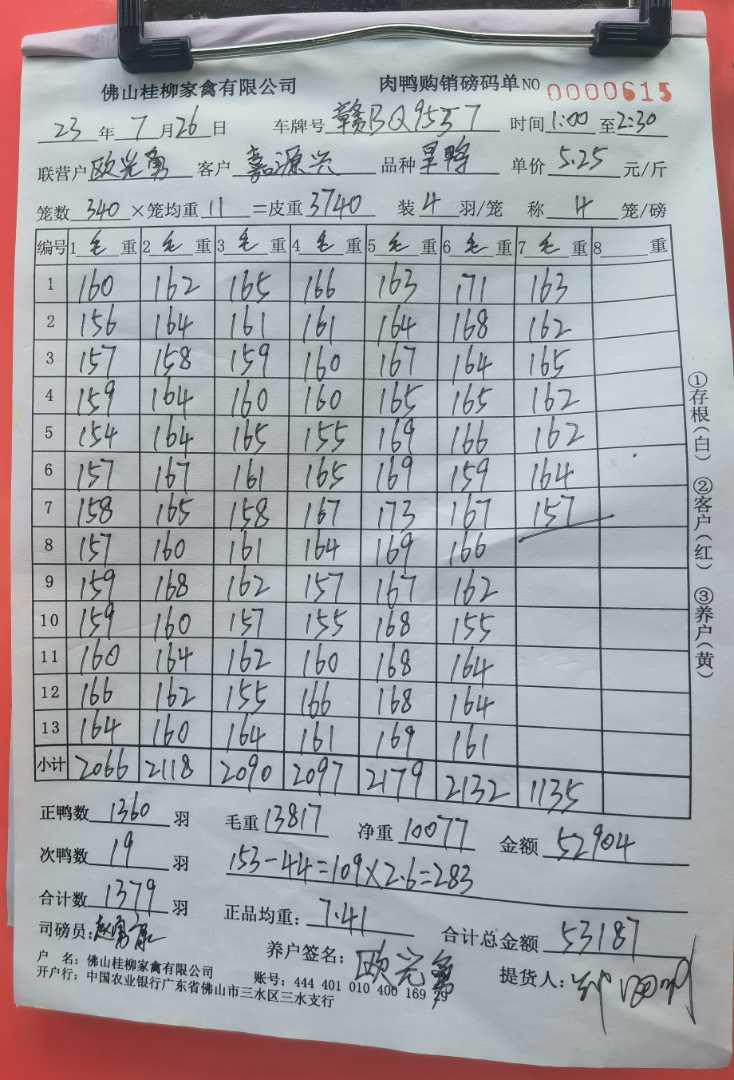 佛山桂柳家禽有限公司 肉鸭购销磅码单 NO 0000615
23 年 7 月 26 日 车牌号 赣BQ9557 时间 1:00 至 2:30
联营户 欧光勇 客户 嘉源兴 品种 旱鸭 单价 5.25 元/斤
笼数 340 ×笼均重 11 =皮重 3740 装 4 羽/笼 称 4 笼/磅
编号 1 毛 重 2 毛 重 3 毛 重 4 毛 重 5 毛 重 6 毛 重 7 毛 重 8 重
1 160 162 165 166 163 171 163
2 156 164 161 161 164 168 162
3 157 158 159 160 167 164 165
4 159 164 160 160 165 165 162
5 154 164 165 155 169 166 162
6 157 167 161 165 169 159 164
7 158 165 158 167 173 167 157
8 157 160 161 164 169 166
9 159 168 162 157 167 162
10 159 160 157 155 168 155
11 160 164 162 160 168 164
12 166 162 155 166 168 164
13 164 160 164 161 169 161
小计 2066 2118 2090 2097 2179 2132 1135
①存根(白) ②客户(红) ③养户(黄)
正鸭数 1360 羽 毛重 13817 净重 10077 金额 52904
次鸭数 19 羽 153-44=109×2.6=283
合计数 1379 羽 正品均重: 7.41 合计总金额 53187
司磅员: 养户签名: 欧光勇 提货人:
户 名: 佛山桂柳家禽有限公司 账号: 444 401 010 400 169 29
开户行: 中国农业银行广东省佛山市三水区三水支行